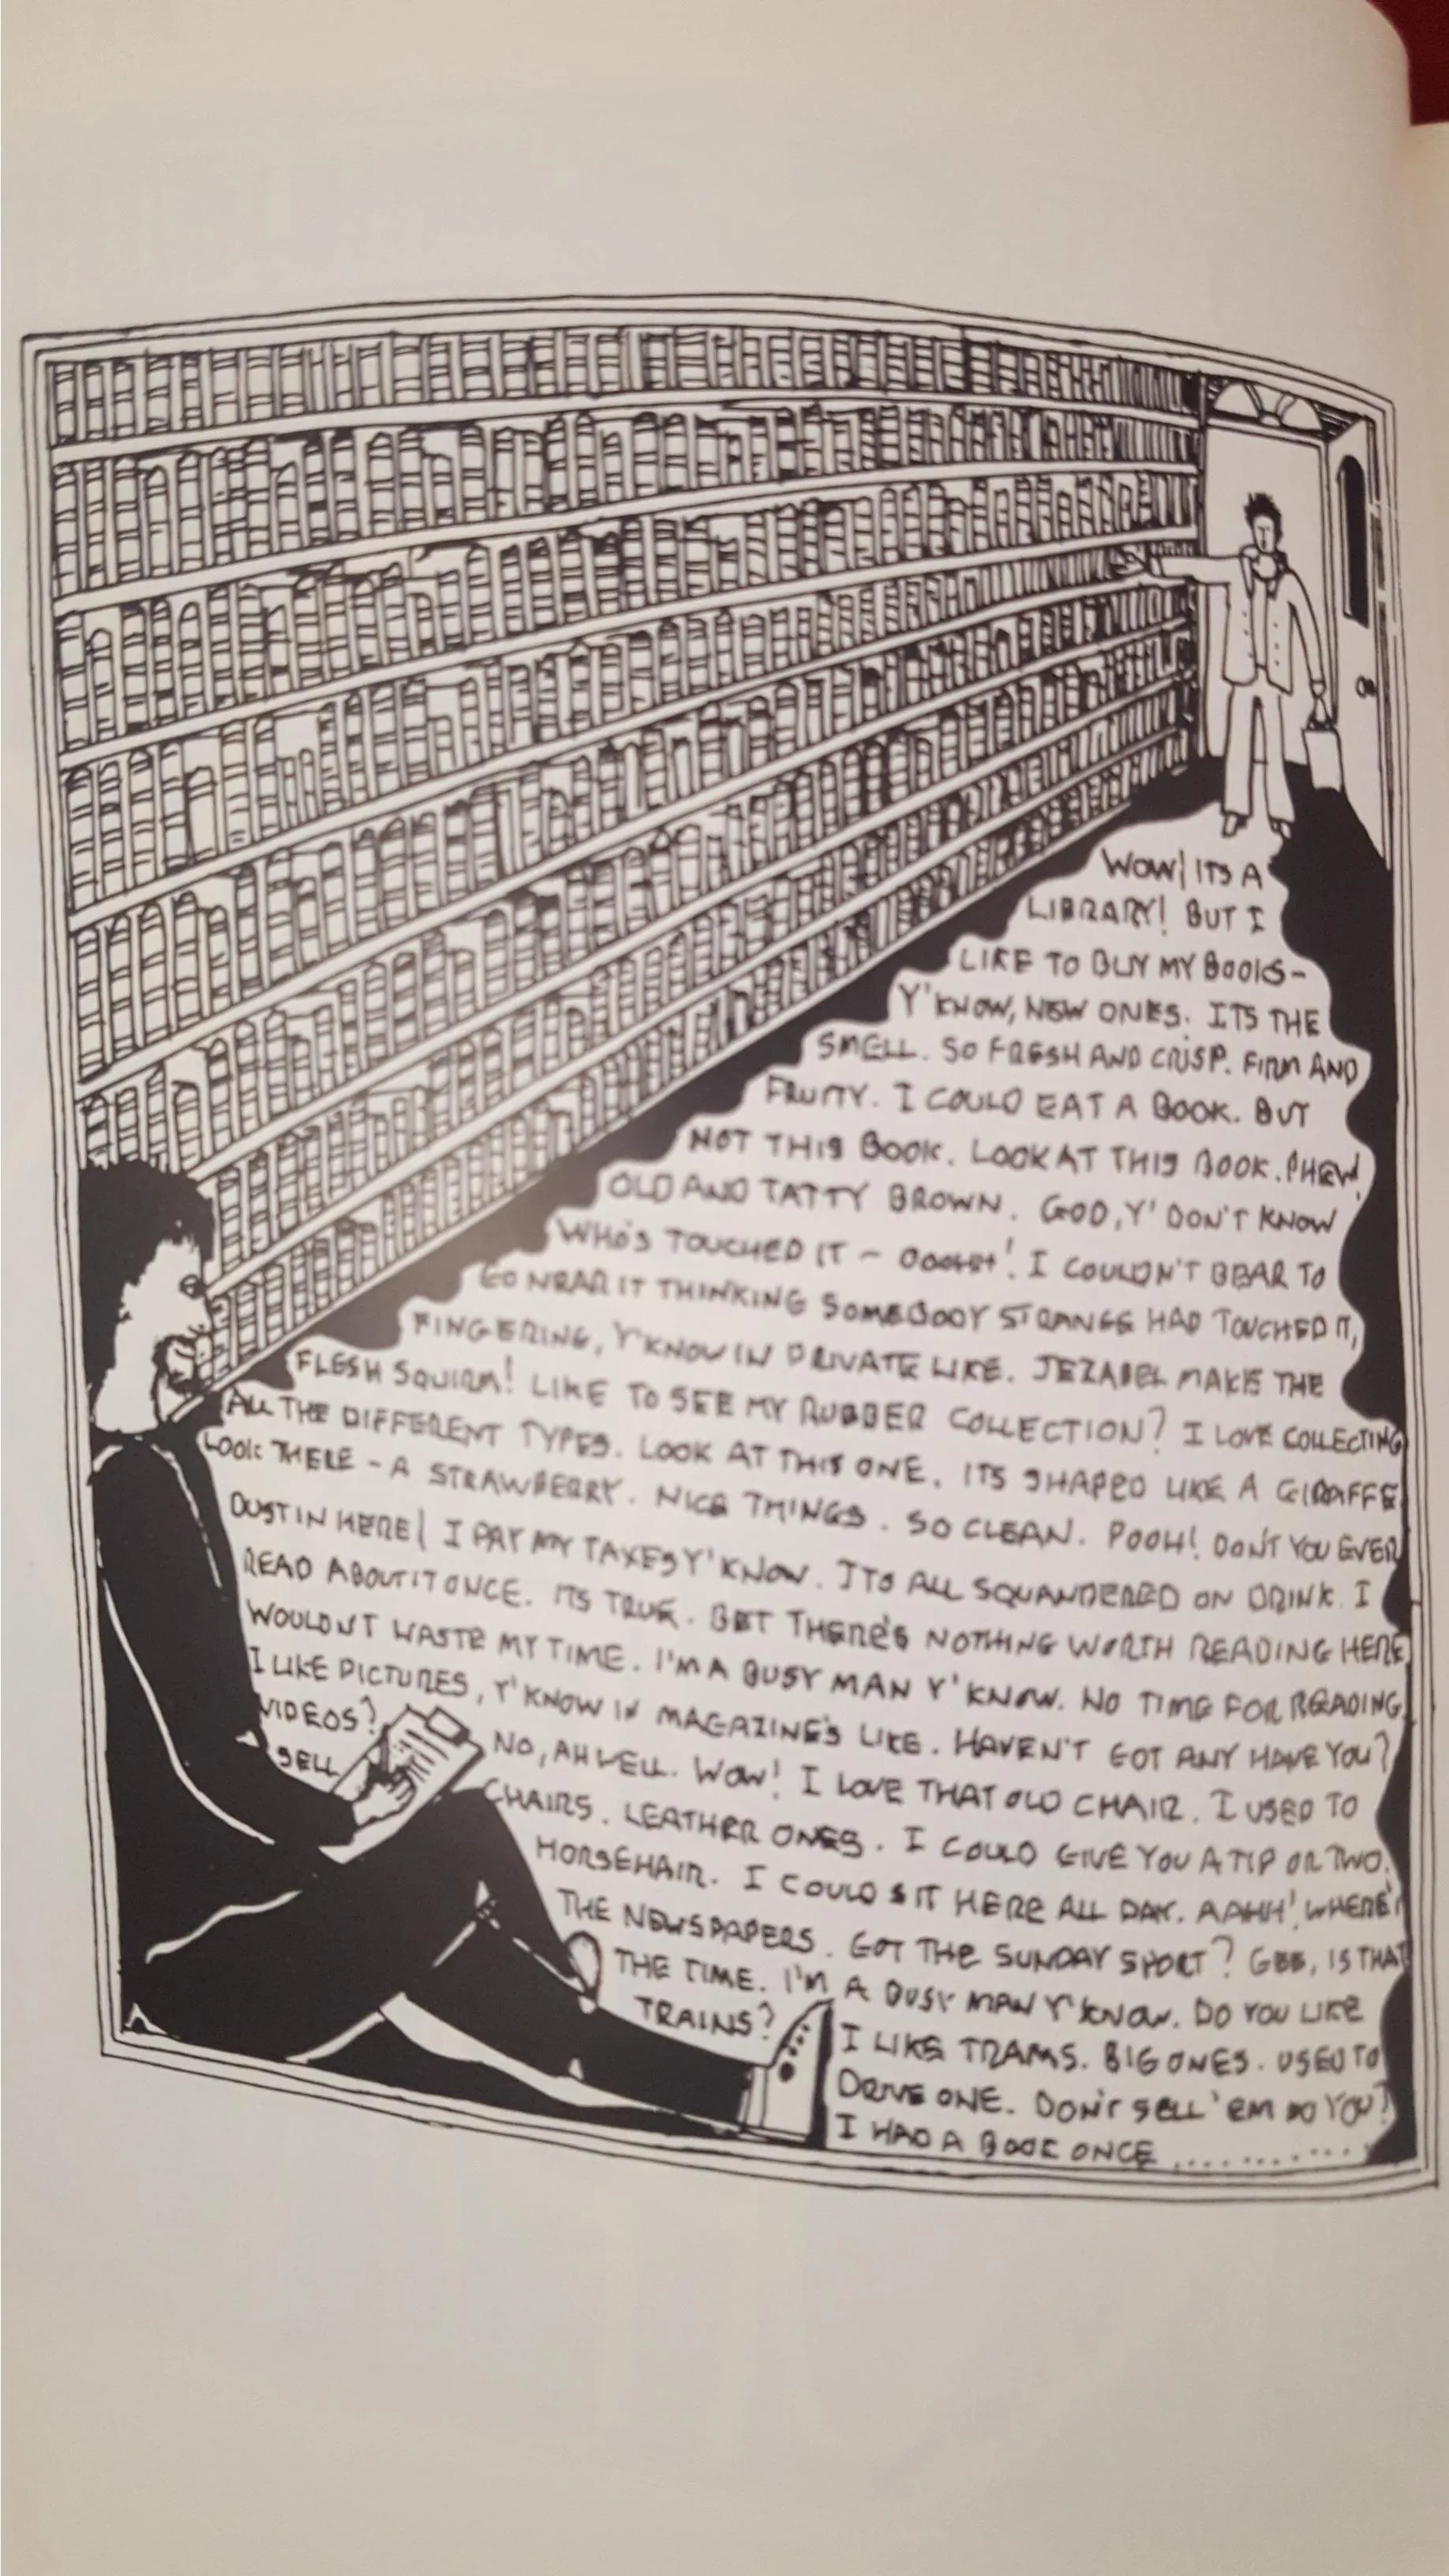 WOW! ITS A
LIBRARY! BUT I
LIKE TO BUY MY BOOKS -
Y'KNOW, NEW ONES. ITS THE
SMELL. SO FRESH AND CRISP. FIRM AND
FRUITY. I COULD EAT A BOOK. BUT
NOT THIS BOOK. LOOK AT THIS BOOK. PHEW!
OLD AND TATTY BROWN. GOD, Y'DON'T KNOW
WHO'S TOUCHED IT - I COULDN'T BEAR TO
GO NEAR IT THINKING SOMEBODY STRANGE HAD TOUCHED IT,
FINGERING, Y'KNOW IN PRIVATE LIKE. JEZABEL MAKE THE
FLESH SQUIRM! LIKE TO SEE MY RUBBER COLLECTION? I LOVE COLLECTING
ALL THE DIFFERENT TYPES. LOOK AT THIS ONE. ITS SHAPED LIKE A GIRAFFE
LOOK THERE - A STRAWBERRY. NICE THINGS. SO CLEAN. POOH! DON'T YOU EVER
DUST IN HERE! I PAY MY TAXES Y'KNOW. ITS ALL SQUANDERED ON DRINK. I
READ ABOUT IT ONCE. ITS TRUE. BET THERE'S NOTHING WORTH READING HERE
WOULDN'T WASTE MY TIME. I'M A BUSY MAN Y'KNOW. NO TIME FOR READING.
I LIKE PICTURES, Y'KNOW IN MAGAZINE'S LIKE. HAVEN'T GOT ANY HAVE YOU?
VIDEOS? NO, AH WELL. WOW! I LOVE THAT OLD CHAIR. I USED TO
SELL CHAIRS. LEATHER ONES. I COULD GIVE YOU A TIP OR TWO.
HORSEHAIR. I COULD SIT HERE ALL DAY. AAHH! WHERE'S
THE NEWSPAPERS. GOT THE SUNDAY SPORT? GEE, IS THAT
THE TIME. I'M A BUSY MAN Y'KNOW. DO YOU LIKE
TRAINS? I LIKE TRAMS. BIG ONES. USED TO
DRIVE ONE. DON'T SELL 'EM DO YOU?
I HAD A BOOK ONCE ............